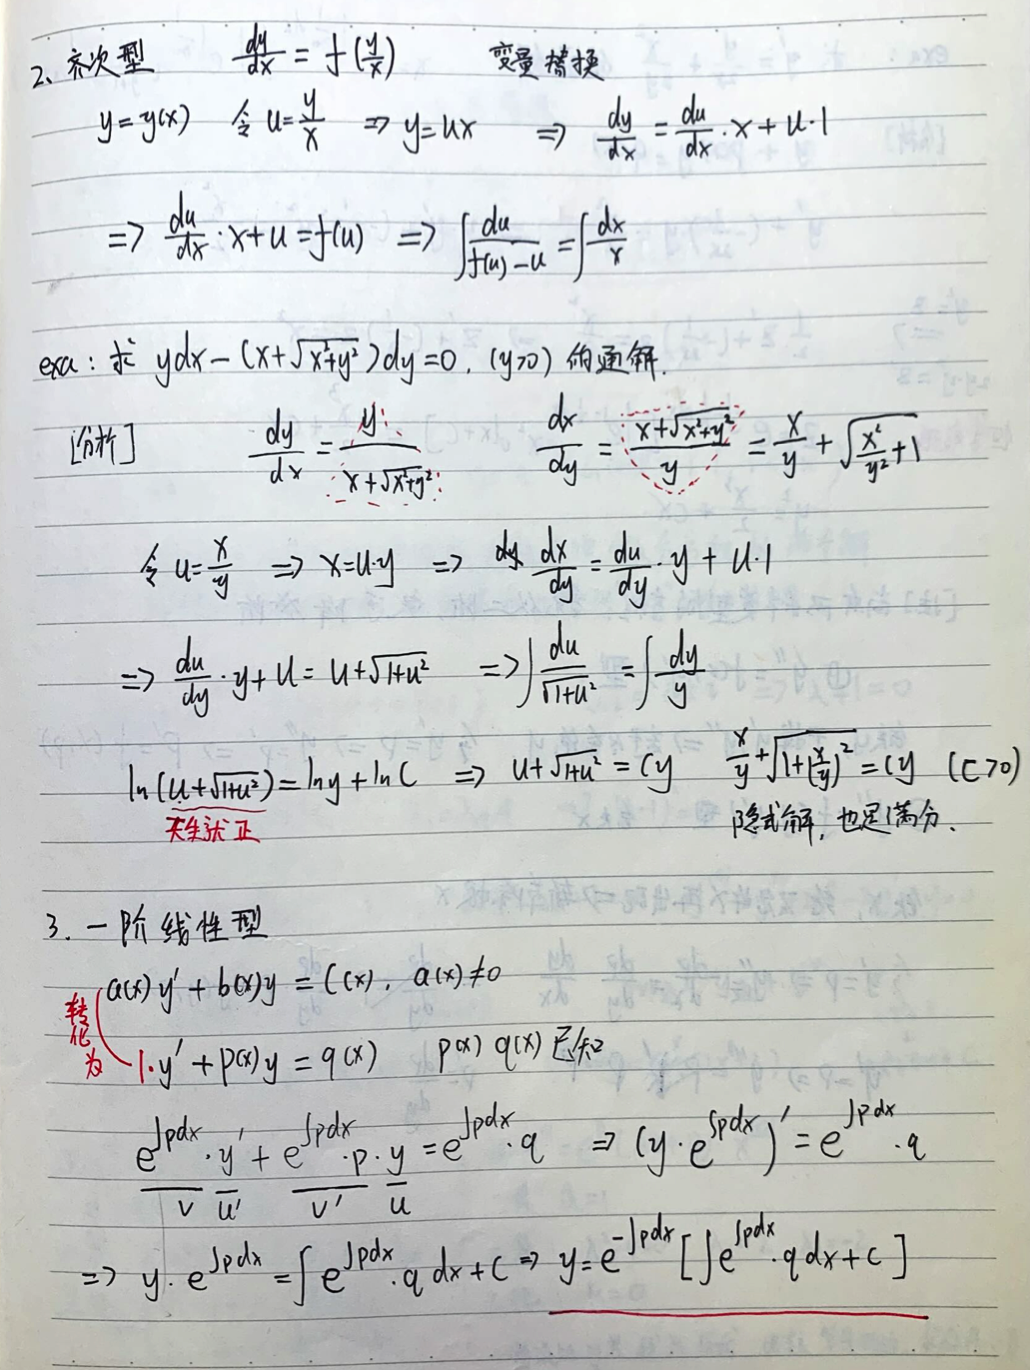 2、齐次型 dy/dx = f(y/x) 变量替换
y=y(x) 令 u=y/x ⇒ y=ux ⇒ dy/dx = du/dx·x+u·1
⇒ du/dx·x+u=f(u) ⇒ ∫du/(f(u)-u) = ∫dx/x
exa: 求 ydx-(x+√(x²+y²))dy=0, (y>0) 的通解.
[分析] dy/dx = y/(x+√(x²+y²)) dx/dy = (x+√(x²+y²))/y = x/y+√(x²/y²+1)
令 u=x/y ⇒ x=u·y ⇒ dx/dy = du/dy·y+u·1
⇒ du/dy·y+u=u+√(1+u²) ⇒ ∫du/√(1+u²) = ∫dy/y
ln(u+√(1+u²))=lny+lnC ⇒ u+√(1+u²)=Cy x/y+√(1+(x/y)²)=Cy (C>0)
天生就正 隐式解, 也是满分.
3. 一阶线性型
a(x)y'+b(x)y=C(x), a(x)≠0
转化为
1·y'+p(x)y=q(x) p(x) q(x)已知
e^∫pdx·y'+e^∫pdx·p·y=e^∫pdx·q ⇒ (y·e^∫pdx)'=e^∫pdx·q
v u' v' u
⇒ y·e^∫pdx=∫e^∫pdx·q dx+C ⇒ y=e^-∫pdx[∫e^∫pdx·qdx+C]